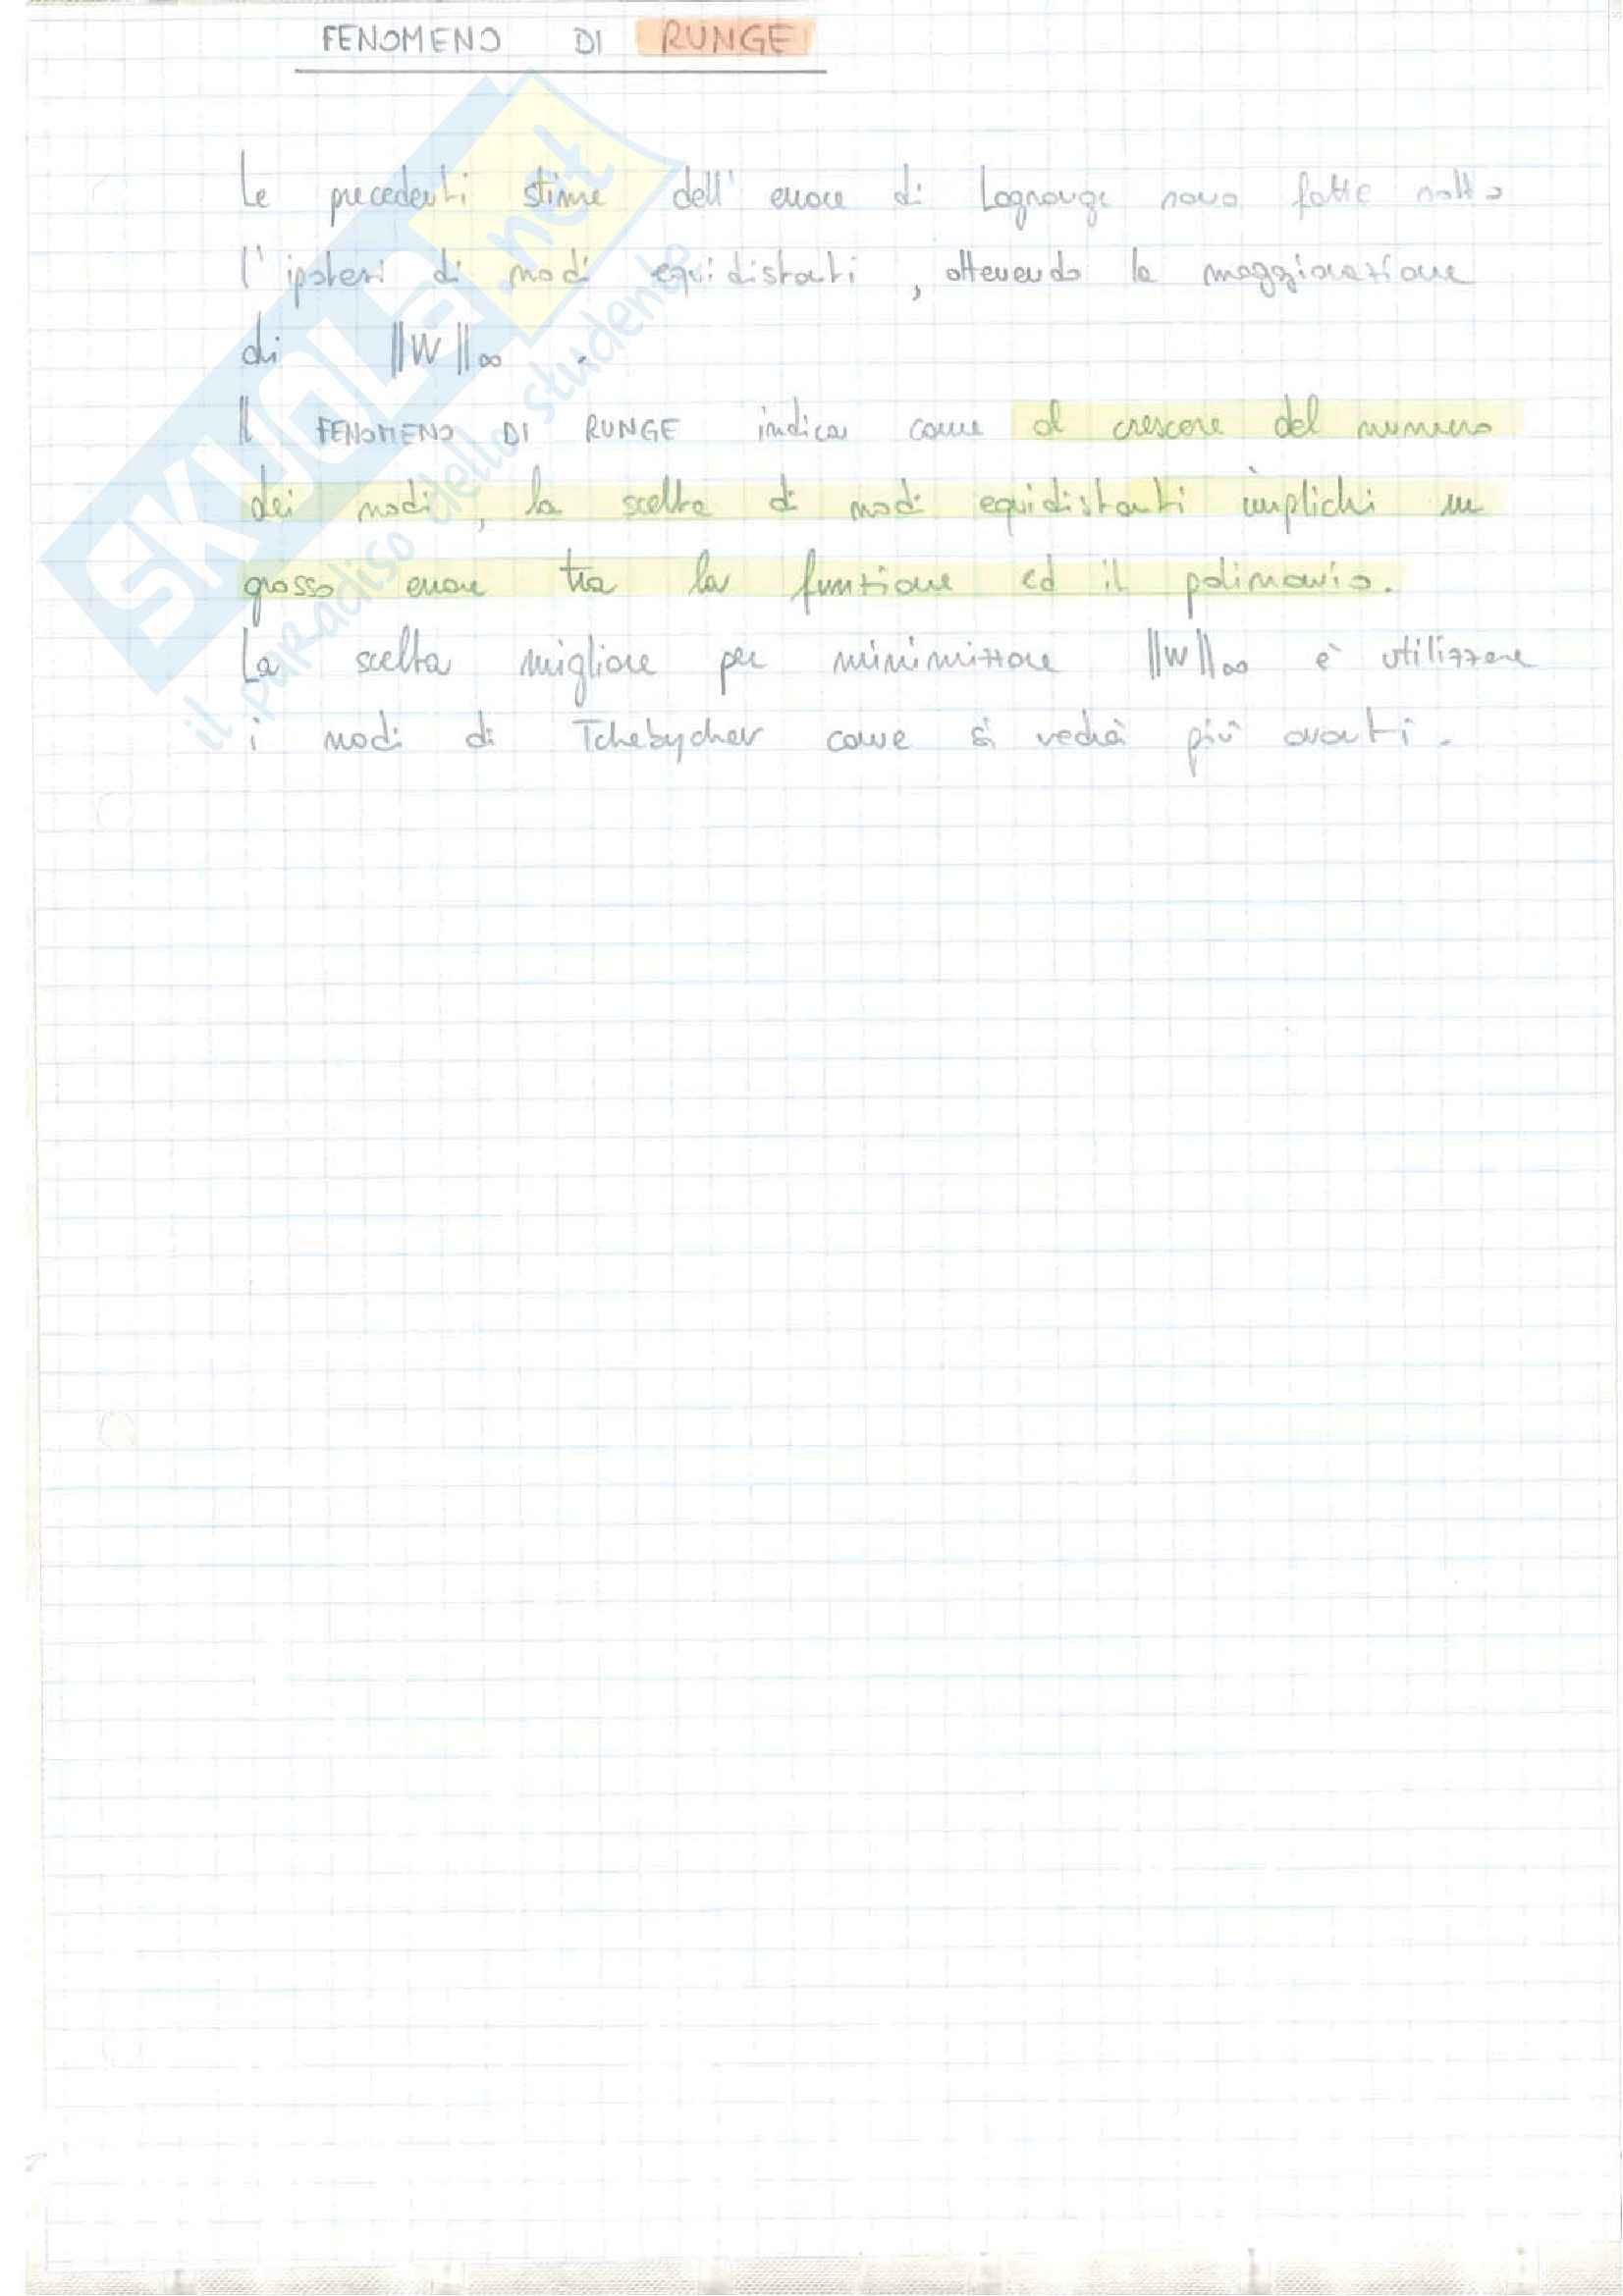 FENOMENO DI RUNGE
Le precedenti stime dell' errore di Lagrange sono fatte sotto
l' ipotesi di nodi equidistanti , ottenendo la maggiorazione
di ||W||∞ .
Il FENOMENO DI RUNGE indica come al crescere del numero
dei nodi , la scelta di nodi equidistanti implichi un
grosso errore tra la funzione ed il polinomio.
La scelta migliore per minimizzare ||W||∞ è utilizzare
i nodi di Tchebychev come si vedrà più avanti .
SKUOLA.net
il paradiso dello studente